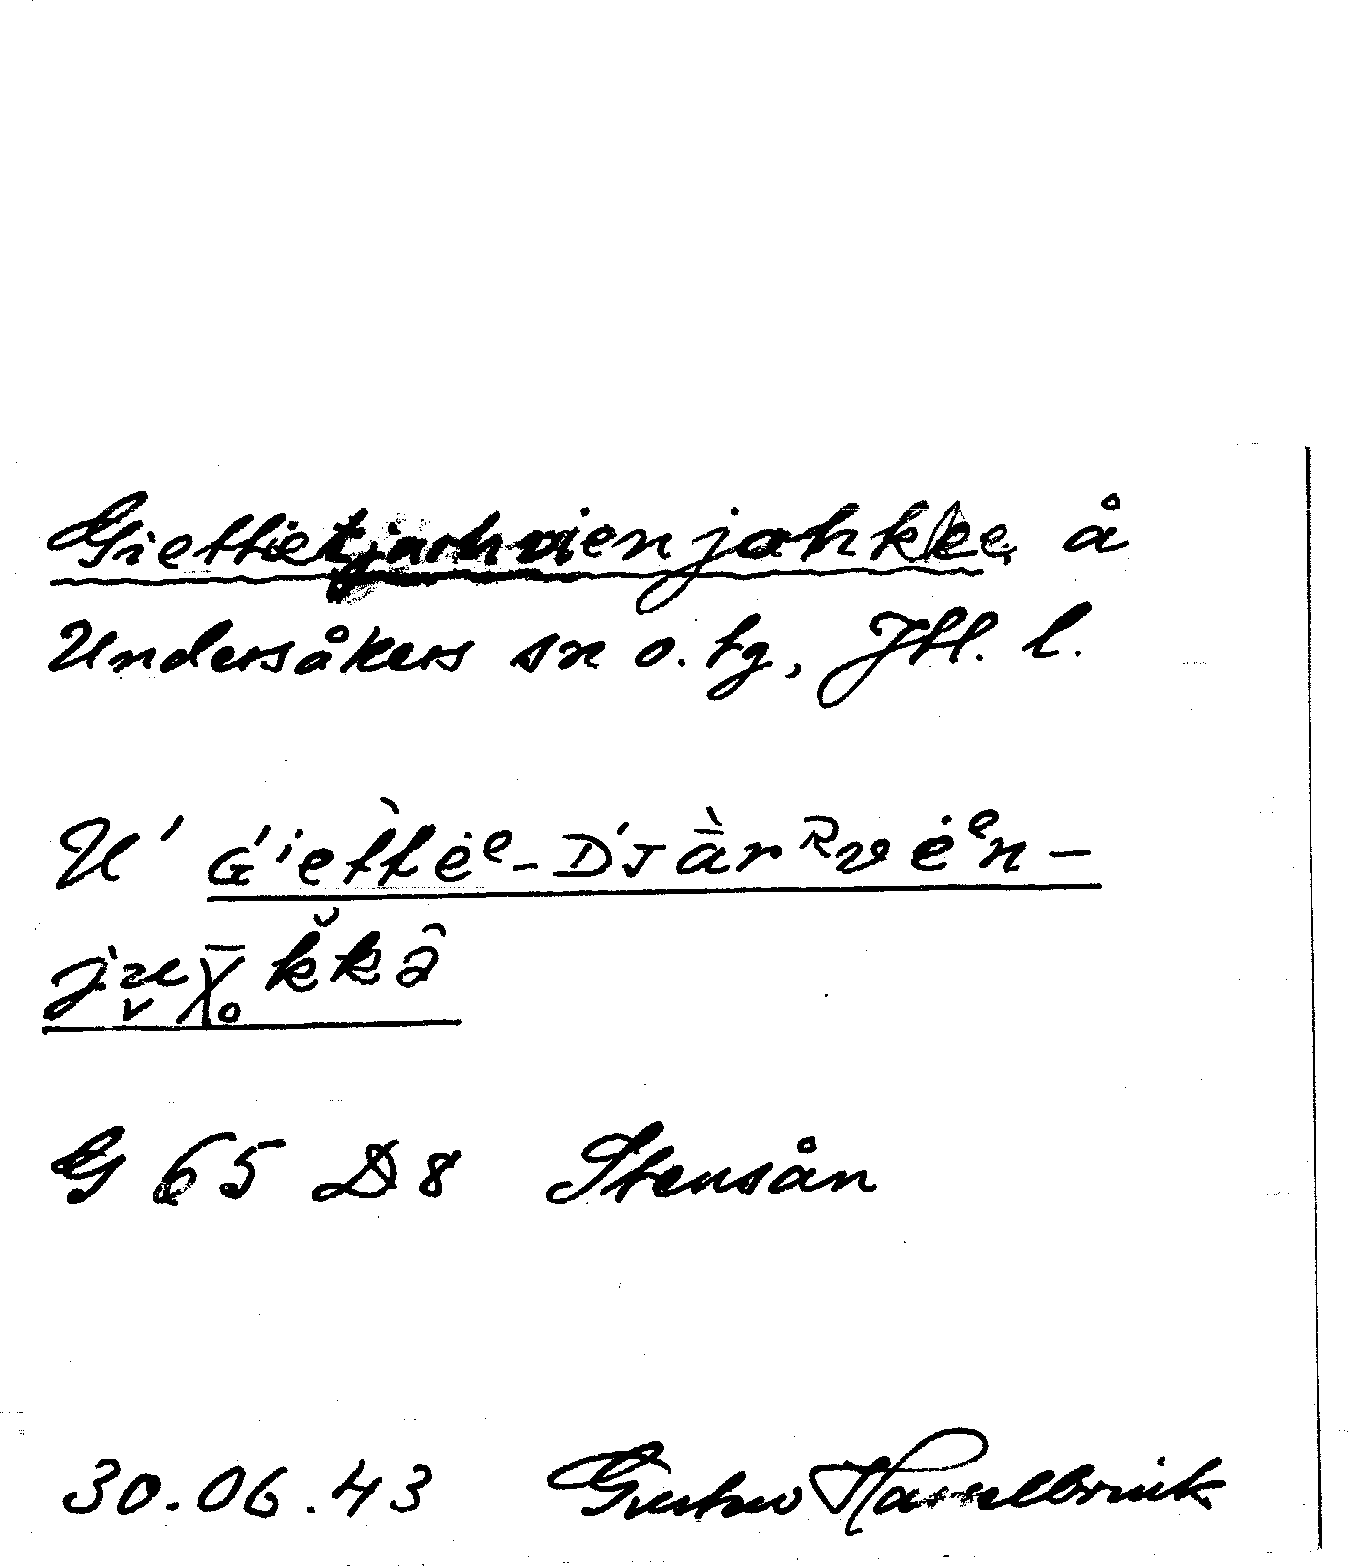 Giettietjarhvienjohkkee, å
Undersåkers sn o. tg, Jtl. l.
U' G'iettėᵉ-D'Jàrᴿvėᵉn-
G 65 D8 Stensån
30.06.43 Gustav Hasselbrink